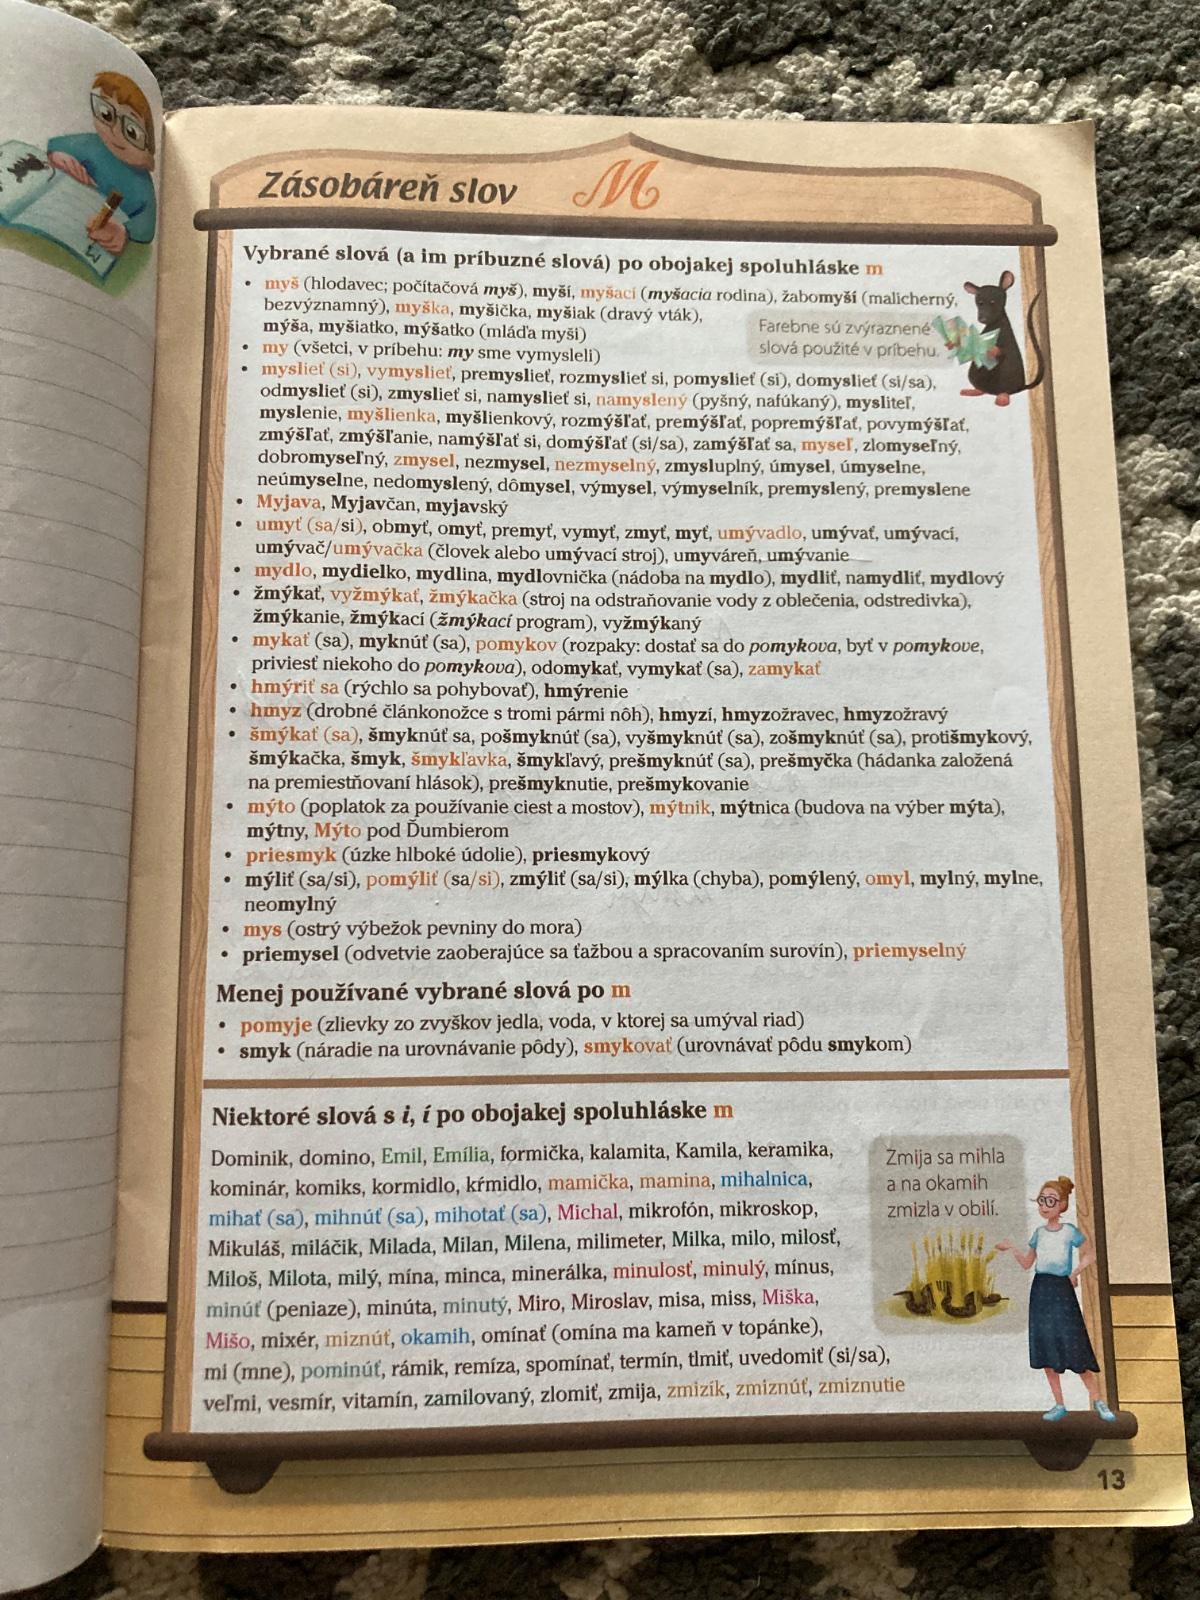 Zásobáreň slov M
Vybrané slová (a im príbuzné slová) po obojakej spoluhláske m
• myš (hlodavec; počítačová myš), myší, myšací (myšacia rodina), žabomyší (malicherný,
bezvýznamný), myška, myšička, myšiak (dravý vták),
mýša, myšiatko, mýšatko (mláďa myši)
Farebne sú zvýraznené
slová použité v príbehu.
• my (všetci, v príbehu: my sme vymysleli)
• myslieť (si), vymyslieť, premyslieť, rozmyslieť si, pomyslieť (si), domyslieť (si/sa),
odmyslieť (si), zmyslieť si, namyslieť si, namyslený (pyšný, nafúkaný), mysliteľ,
myslenie, myšlienka, myšlienkový, rozmýšľať, premýšľať, popremýšľať, povymýšľať,
zmýšľať, zmýšľanie, namýšľať si, domýšľať (si/sa), zamýšľať sa, myseľ, zlomyseľný,
dobromyseľný, zmysel, nezmysel, nezmyselný, zmysluplný, úmysel, úmyselne,
neúmyselne, nedomyslený, dômysel, výmysel, výmyselník, premyslený, premyslene
• Myjava, Myjavčan, myjavský
• umyť (sa/si), obmyť, omyť, premyť, vymyť, zmyť, myť, umývadlo, umývať, umývací,
umývač/umývačka (človek alebo umývací stroj), umyváreň, umývanie
• mydlo, mydielko, mydlina, mydlovnička (nádoba na mydlo), mydliť, namydliť, mydlový
• žmýkať, vyžmýkať, žmýkačka (stroj na odstraňovanie vody z oblečenia, odstredivka),
žmýkanie, žmýkací (žmýkací program), vyžmýkaný
• mykať (sa), myknúť (sa), pomykov (rozpaky: dostať sa do pomykova, byť v pomykove,
priviesť niekoho do pomykova), odomykať, vymykať (sa), zamykať
• hmýriť sa (rýchlo sa pohybovať), hmýrenie
• hmyz (drobné článkonožce s tromi pármi nôh), hmyzí, hmyzožravec, hmyzožravý
• šmýkať (sa), šmyknúť sa, pošmyknúť (sa), vyšmyknúť (sa), zošmyknúť (sa), protišmykový,
šmýkačka, šmyk, šmykľavka, šmykľavý, prešmyknúť (sa), prešmyčka (hádanka založená
na premiestňovaní hlások), prešmyknutie, prešmykovanie
• mýto (poplatok za používanie ciest a mostov), mýtnik, mýtnica (budova na výber mýta),
mýtny, Mýto pod Ďumbierom
• priesmyk (úzke hlboké údolie), priesmykový
• mýliť (sa/si), pomýliť (sa/si), zmýliť (sa/si), mýlka (chyba), pomýlený, omyl, mylný, mylne,
neomylný
• mys (ostrý výbežok pevniny do mora)
• priemysel (odvetvie zaoberajúce sa ťažbou a spracovaním surovín), priemyselný
Menej používané vybrané slová po m
• pomyje (zlievky zo zvyškov jedla, voda, v ktorej sa umýval riad)
• smyk (náradie na urovnávanie pôdy), smykovať (urovnávať pôdu smykom)
Niektoré slová s i, í po obojakej spoluhláske m
Dominik, domino, Emil, Emília, formička, kalamita, Kamila, keramika,
kominár, komiks, kormidlo, kŕmidlo, mamička, mamina, mihalnica,
mihať (sa), mihnúť (sa), mihotať (sa), Michal, mikrofón, mikroskop,
Mikuláš, miláčik, Milada, Milan, Milena, milimeter, Milka, milo, milosť,
Miloš, Milota, milý, mína, minca, minerálka, minulosť, minulý, mínus,
minúť (peniaze), minúta, minutý, Miro, Miroslav, misa, miss, Miška,
Mišo, mixér, miznúť, okamih, omínať (omína ma kameň v topánke),
mi (mne), pominúť, rámik, remíza, spomínať, termín, tlmiť, uvedomiť (si/sa),
veľmi, vesmír, vitamín, zamilovaný, zlomiť, zmija, zmizík, zmiznúť, zmiznutie
Zmija sa mihla
a na okamih
zmizla v obilí.
13